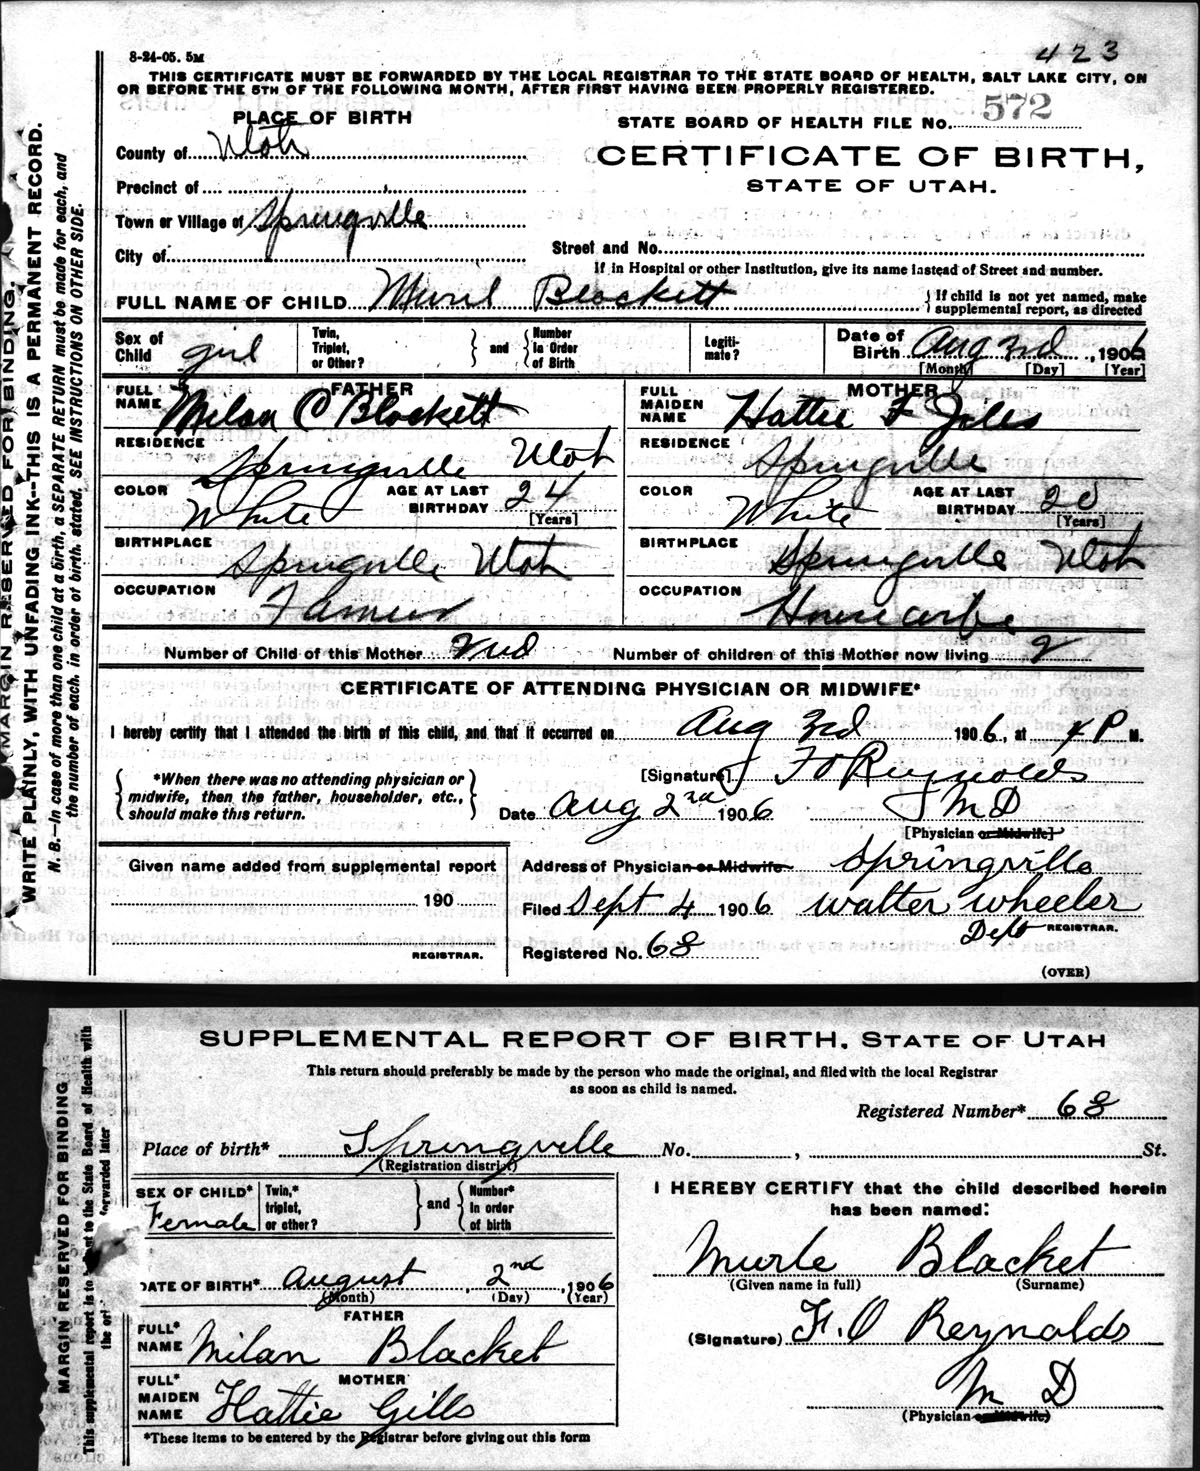 8-24-05. 5M
423
THIS CERTIFICATE MUST BE FORWARDED BY THE LOCAL REGISTRAR TO THE STATE BOARD OF HEALTH, SALT LAKE CITY, ON
OR BEFORE THE 5TH OF THE FOLLOWING MONTH, AFTER FIRST HAVING BEEN PROPERLY REGISTERED.
PLACE OF BIRTH
STATE BOARD OF HEALTH FILE No. 572
County of Utah
CERTIFICATE OF BIRTH,
STATE OF UTAH.
Precinct of
Town or Village of Springville
City of
Street and No.
If in Hospital or other Institution, give its name instead of Street and number.
FULL NAME OF CHILD Murel Blackett
{If child is not yet named, make
supplemental report, as directed
Sex of Child girl
Twin, Triplet, or Other? } and { Number in Order of Birth
Legitimate?
Date of Birth Aug 3rd, 1906
[Month] [Day] [Year]
FATHER
FULL NAME Milan C Blackett
MOTHER
FULL MAIDEN NAME Hattie F Jiles
RESIDENCE Springville Utah
RESIDENCE Springville
COLOR White AGE AT LAST BIRTHDAY 24 [Years]
COLOR White AGE AT LAST BIRTHDAY 20 [Years]
BIRTHPLACE Springville Utah
BIRTHPLACE Springville Utah
OCCUPATION Farmer
OCCUPATION Housewife
Number of Child of this Mother 2nd
Number of children of this Mother now living 2
CERTIFICATE OF ATTENDING PHYSICIAN OR MIDWIFE*
I hereby certify that I attended the birth of this child, and that it occurred on Aug 3rd 1906, at 4 P M.
{*When there was no attending physician or
midwife, then the father, householder, etc.,
should make this return.}
[Signature] F O Reynolds
M D
Date Aug 2nd 1906
[Physician or Midwife]
Given name added from supplemental report
190
REGISTRAR.
Address of Physician or Midwife Springville
Filed Sept 4 1906 Walter Wheeler
Dept REGISTRAR.
Registered No. 68
(OVER)
MARGIN RESERVED FOR BINDING.
WRITE PLAINLY, WITH UNFADING INK---THIS IS A PERMANENT RECORD.
N. B.—In case of more than one child at a birth, a SEPARATE RETURN must be made for each, and
the number of each, in order of birth, stated, SEE INSTRUCTIONS ON OTHER SIDE.
SUPPLEMENTAL REPORT OF BIRTH, STATE OF UTAH
This return should preferably be made by the person who made the original, and filed with the local Registrar
as soon as child is named.
Registered Number* 68
Place of birth* Springville No. , St.
(Registration district)
SEX OF CHILD* Female
Twin,* triplet, or other? } and { Number* in order of birth
I HEREBY CERTIFY that the child described herein
has been named:
Murle Blacket
(Given name in full) (Surname)
DATE OF BIRTH* August 2nd, 1906
(Month) (Day) (Year)
FATHER
FULL* NAME Milan Blacket
(Signature) F. O Reynolds
M D
(Physician or Midwife)
MOTHER
FULL* MAIDEN NAME Hattie Gills
*These items to be entered by the Registrar before giving out this form
MARGIN RESERVED FOR BINDING
This supplemental report is to be sent to the State Board of Health with
forwarded later